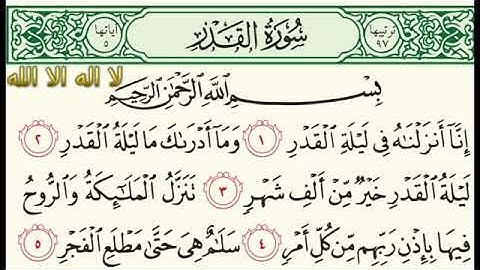 ترتيبها ٩٧
سُورَةُ القَدْرِ
آياتها ٥
لا اله الا الله
بِسْمِ اللَّهِ الرَّحْمَٰنِ الرَّحِيمِ
إِنَّا أَنزَلْنَاهُ فِي لَيْلَةِ الْقَدْرِ ١ وَمَا أَدْرَىٰكَ مَا لَيْلَةُ الْقَدْرِ ٢
لَيْلَةُ الْقَدْرِ خَيْرٌ مِّنْ أَلْفِ شَهْرٍ ٣ تَنَزَّلُ الْمَلَٰئِكَةُ وَالرُّوحُ
فِيهَا بِإِذْنِ رَبِّهِم مِّن كُلِّ أَمْرٍ ٤ سَلَٰمٌ هِيَ حَتَّىٰ مَطْلَعِ الْفَجْرِ ٥